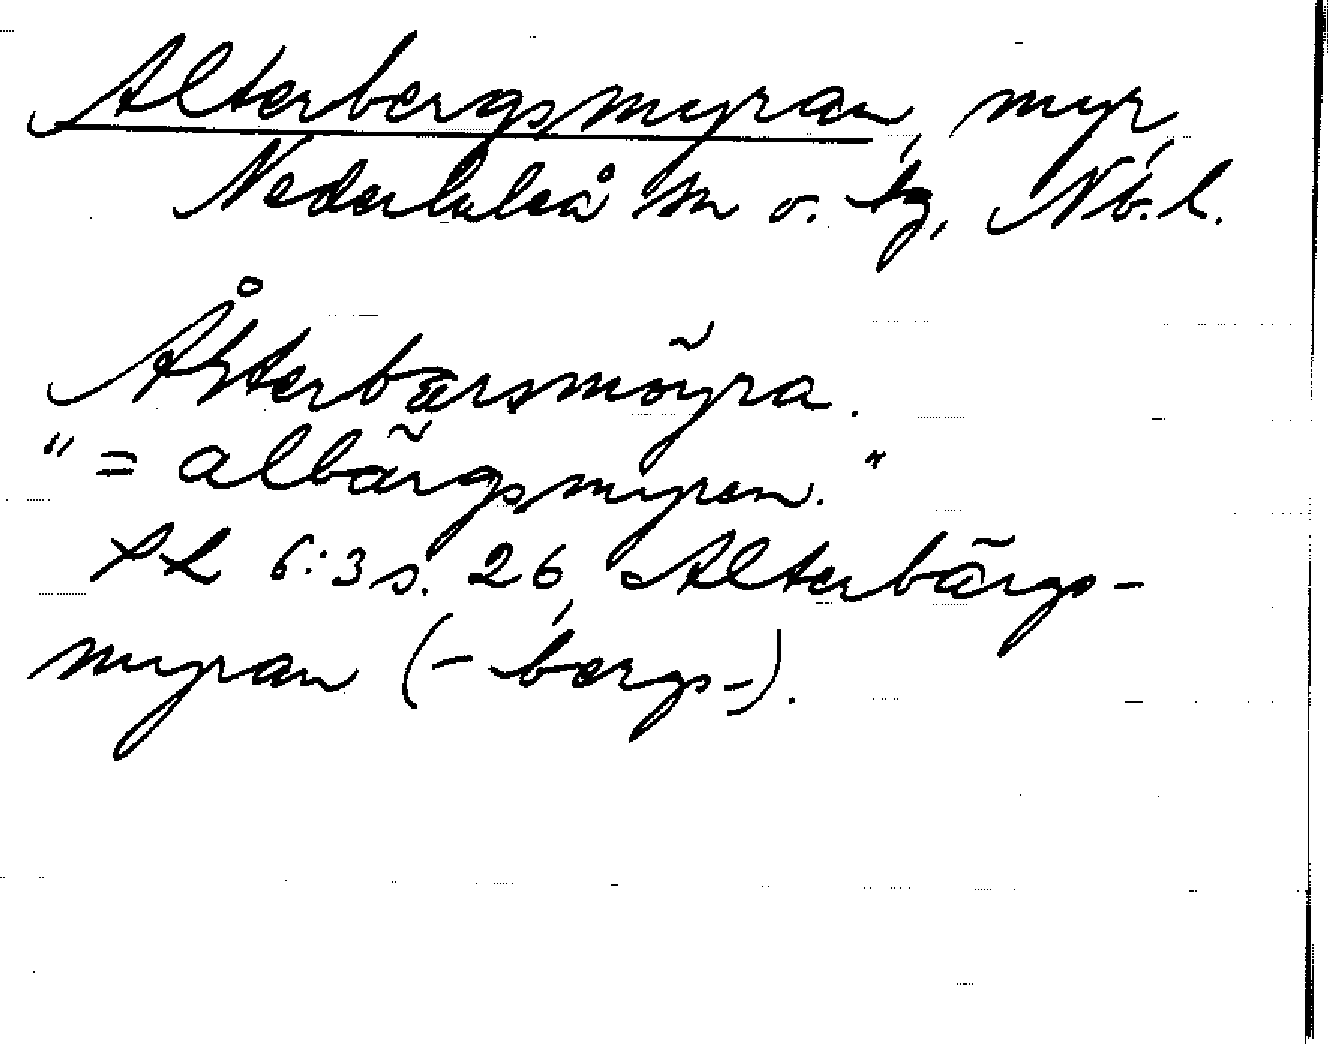 Alterbergsmyran, myr,
Nederluleå sn o. tg, Nb. l.
Ålterbærsmöyra.
" = albärgsmyren. "
XL 6:3 s. 26, Alterbärgs-
myran (-bergs-).